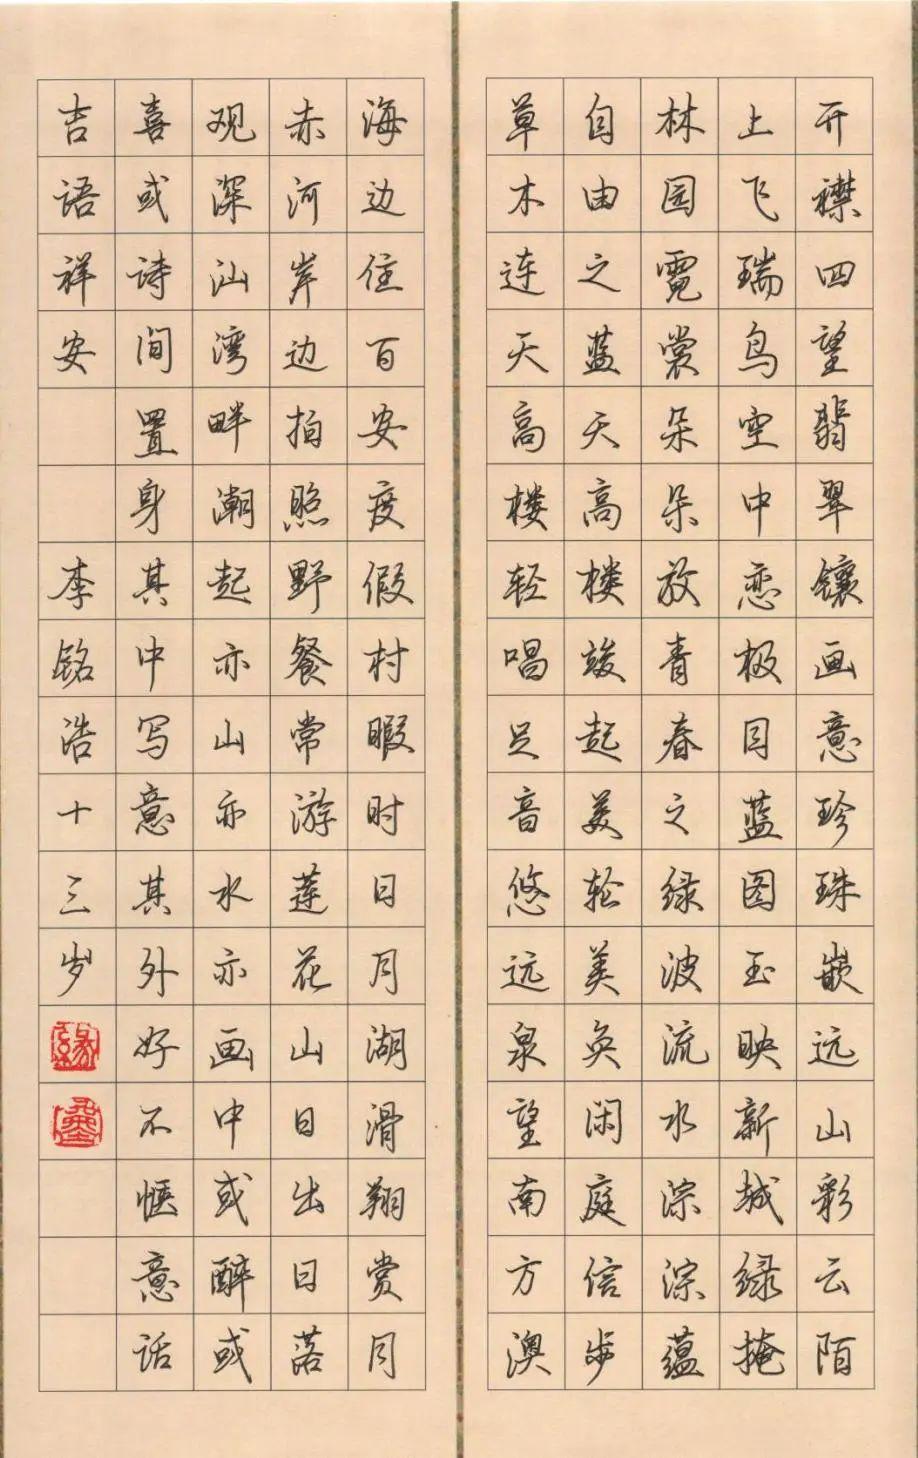 开襟四望翡翠镶画意珍珠嵌远山彩云陌
上飞瑞鸟空中恋极目蓝图玉映新城绿掩
林园霓裳朵朵放青春之绿波流水淙淙蕴
自由之蓝天高楼竣起美轮美奂闲庭信步
草木连天高楼轻唱足音悠远泉望南方澳
海边住百安度假村暇时日月湖滑翔赏月
赤河岸边拍照野餐常游莲花山日出日落
观深汕湾畔潮起亦山亦水亦画中或醉或
喜或诗间置身其中写意其外好不惬意话
吉语祥安
李铭浩十三岁